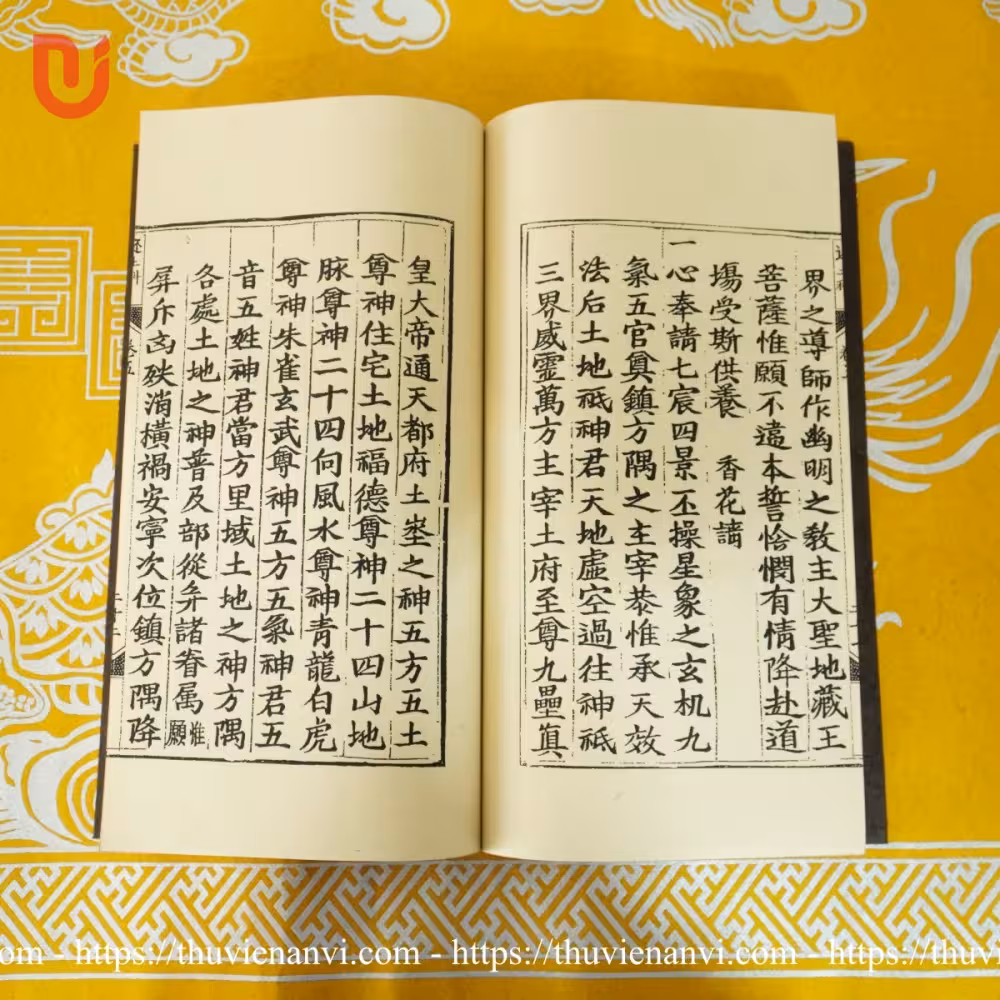 界之導師作幽明之教主大聖地藏王
菩薩惟願不違本誓怜憫有情降赴道
塲受斯供養　香花請
一心奉請七宸四景丕操星象之玄机九
氣五官奠鎮方隅之主宰恭惟承天效
法后土地祇神君天地虛空過往神祇
三界威靈萬方主宰土府至尊九壘真
皇大帝通天都府土垄之神五方五土
尊神住宅土地福德尊神二十四山地
脉尊神二十四向風水尊神青龍白虎
尊神朱雀玄武尊神五方五氣神君五
音五姓神君當方里域土地之神方隅
各處土地之神普及部從并諸眷属惟願
屏斥凶殃消橫禍安寧次位鎮方隅降
卷五
om - https://thuvienanvi.com - https://thuvienanvi.com - https://thuvi